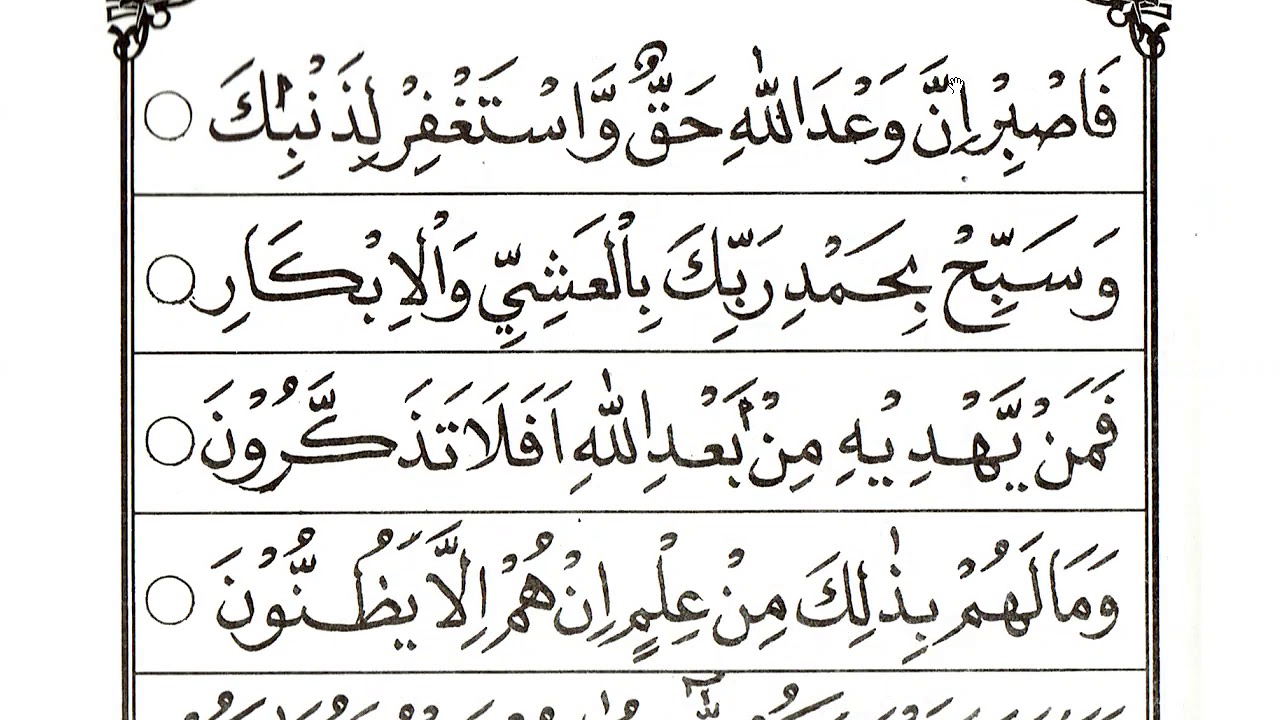 فَاصْبِرْ اِنَّ وَعْدَ اللّٰهِ حَقٌّ وَّاسْتَغْفِرْ لِذَنْۢبِكَ
وَسَبِّحْ بِحَمْدِ رَبِّكَ بِالْعَشِيِّ وَالْاِبْكَارِ
فَمَنْ يَّهْدِيْهِ مِنْۢ بَعْدِ اللّٰهِ اَفَلَا تَذَكَّرُوْنَ
وَمَا لَهُمْ بِذٰلِكَ مِنْ عِلْمٍ اِنْ هُمْ اِلَّا يَظُنُّوْنَ